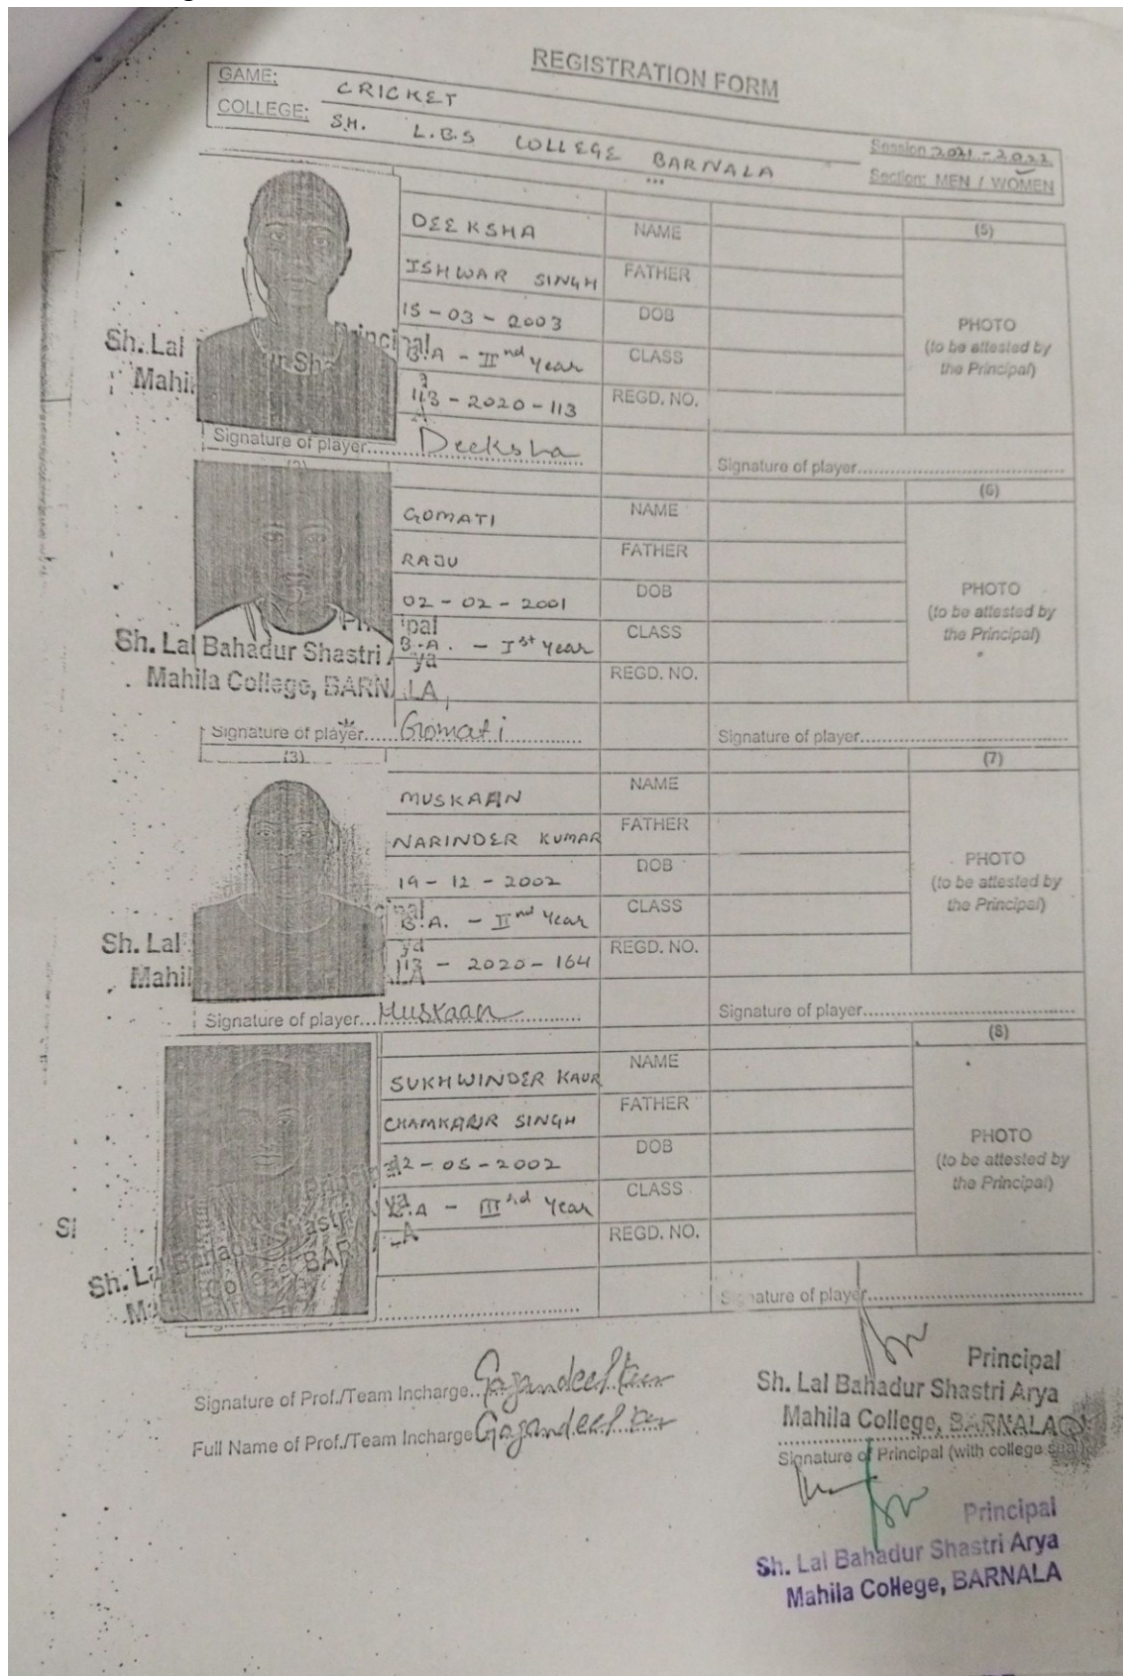 REGISTRATION FORM
GAME: CRICKET
COLLEGE: SH. L.B.S COLLEGE BARNALA
Session 2021 - 2022
Section: MEN / WOMEN
DEEKSHA NAME (5)
ISHWAR SINGH FATHER
15 - 03 - 2003 DOB
B.A - IInd Year CLASS
113 - 2020 - 113 REGD. NO.
PHOTO
(to be attested by
the Principal)
Sh. Lal
Mahil
Signature of player..... Deeksha
Signature of player
GOMATI NAME (6)
RAJU FATHER
02 - 02 - 2001 DOB
B.A. - Ist Year CLASS
REGD. NO.
PHOTO
(to be attested by
the Principal)
Sh. Lal Bahadur Shastri
Mahila College, BARNALA
Signature of player..... Gomati
Signature of player
(3)
MUSKAAN NAME (7)
NARINDER KUMAR FATHER
19 - 12 - 2002 DOB
B.A. - IInd Year CLASS
113 - 2020 - 164 REGD. NO.
PHOTO
(to be attested by
the Principal)
Sh. Lal
Mahil
Signature of player... Muskaan
Signature of player
SUKHWINDER KAUR NAME (8)
SINGH FATHER
- 05 - 2002 DOB
B.A - IIIrd Year CLASS
REGD. NO.
PHOTO
(to be attested by
the Principal)
Signature of player
Signature of Prof./Team Incharge..
Full Name of Prof./Team Incharge
Principal
Sh. Lal Bahadur Shastri Arya
Mahila College, BARNALA
Signature of Principal (with college seal)
Principal
Sh. Lal Bahadur Shastri Arya
Mahila College, BARNALA